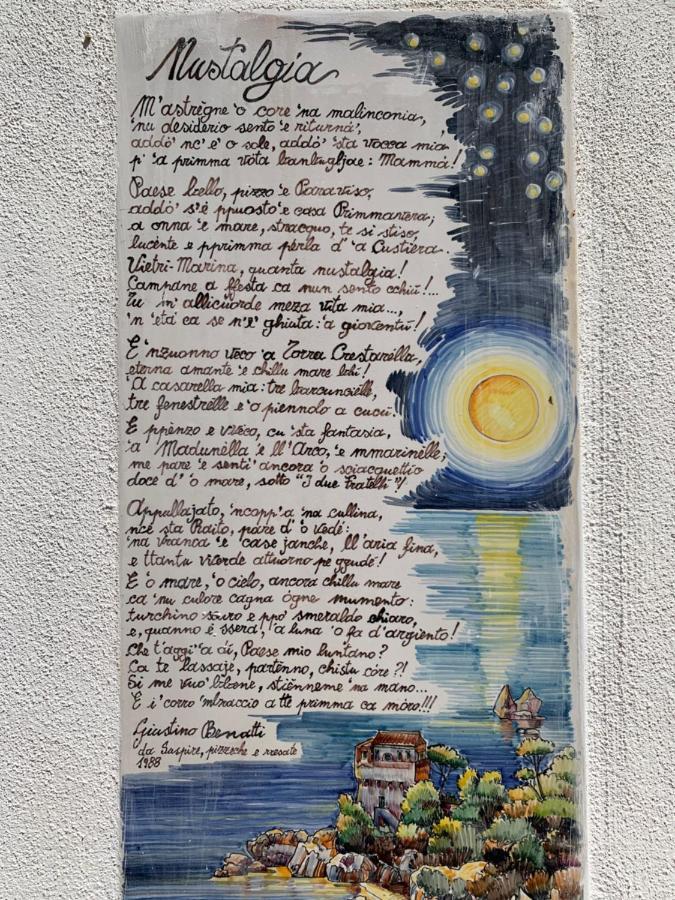 Nustalgia
M'astrégne 'o core 'na malinconia,
'nu desiderio sento 'e riturnà,
addó' nc' è' o sole, addó' 'sta vocca mia
p' 'a primma vota : Mammà!
Paese bello, pizzo 'e Paraviso,
addó' s'è ppuosto 'e casa Primmavera;
a onna 'e mare, stracquo, te si stiso,
lucènte e pprimma pèrla d' 'a Custiera.
Vietri-Marina, quanta nustalgia!
Campane a ffesta ca nun sento cchiù!...
Tu m' allicuorde meza vita mia...,
'n 'età ca se n'è' ghiuta: 'a gioventù!
E 'nzuonno veco 'a Torra Crestarella,
eterna amante 'e chillu mare blu!
'A casarella mia: tre barcuncielle,
tre fenestrelle e 'o piennolo a cucù.
E ppènzo e veco, cu 'sta fantasia,
'a Madunèlla 'e ll'Arco, 'e mmarinèlle;
me pare 'e senti' ancora 'o sciacquettio
doce d' 'o mare, sotto "I due Fratelli"!
Appullajato, 'ncopp'a 'na cullina,
nce sta Raito, pare d' 'o vedé:
'na vranca 'e case janche, ll'aria fina,
e ttantu vverde attuorno pe ggudé!
E 'o mare, 'o cielo, ancora chillu mare
ca 'nu culore cagna ógne mumento:
turchino e ppo' smeraldo chiaro,
e, quanno è sserà, 'a luna 'o fa d'argiento!
Che t'aggi''a dí, Paese mio luntano?
Ca te lassaje, partenno, chistu córe?!
Si me vuo' bbene, stiénneme 'na mano...
E i' corro 'mbraccio a tte primma ca mòro!!!
Giustino Benatti
da Suspire, pizzeche e rresate
1988